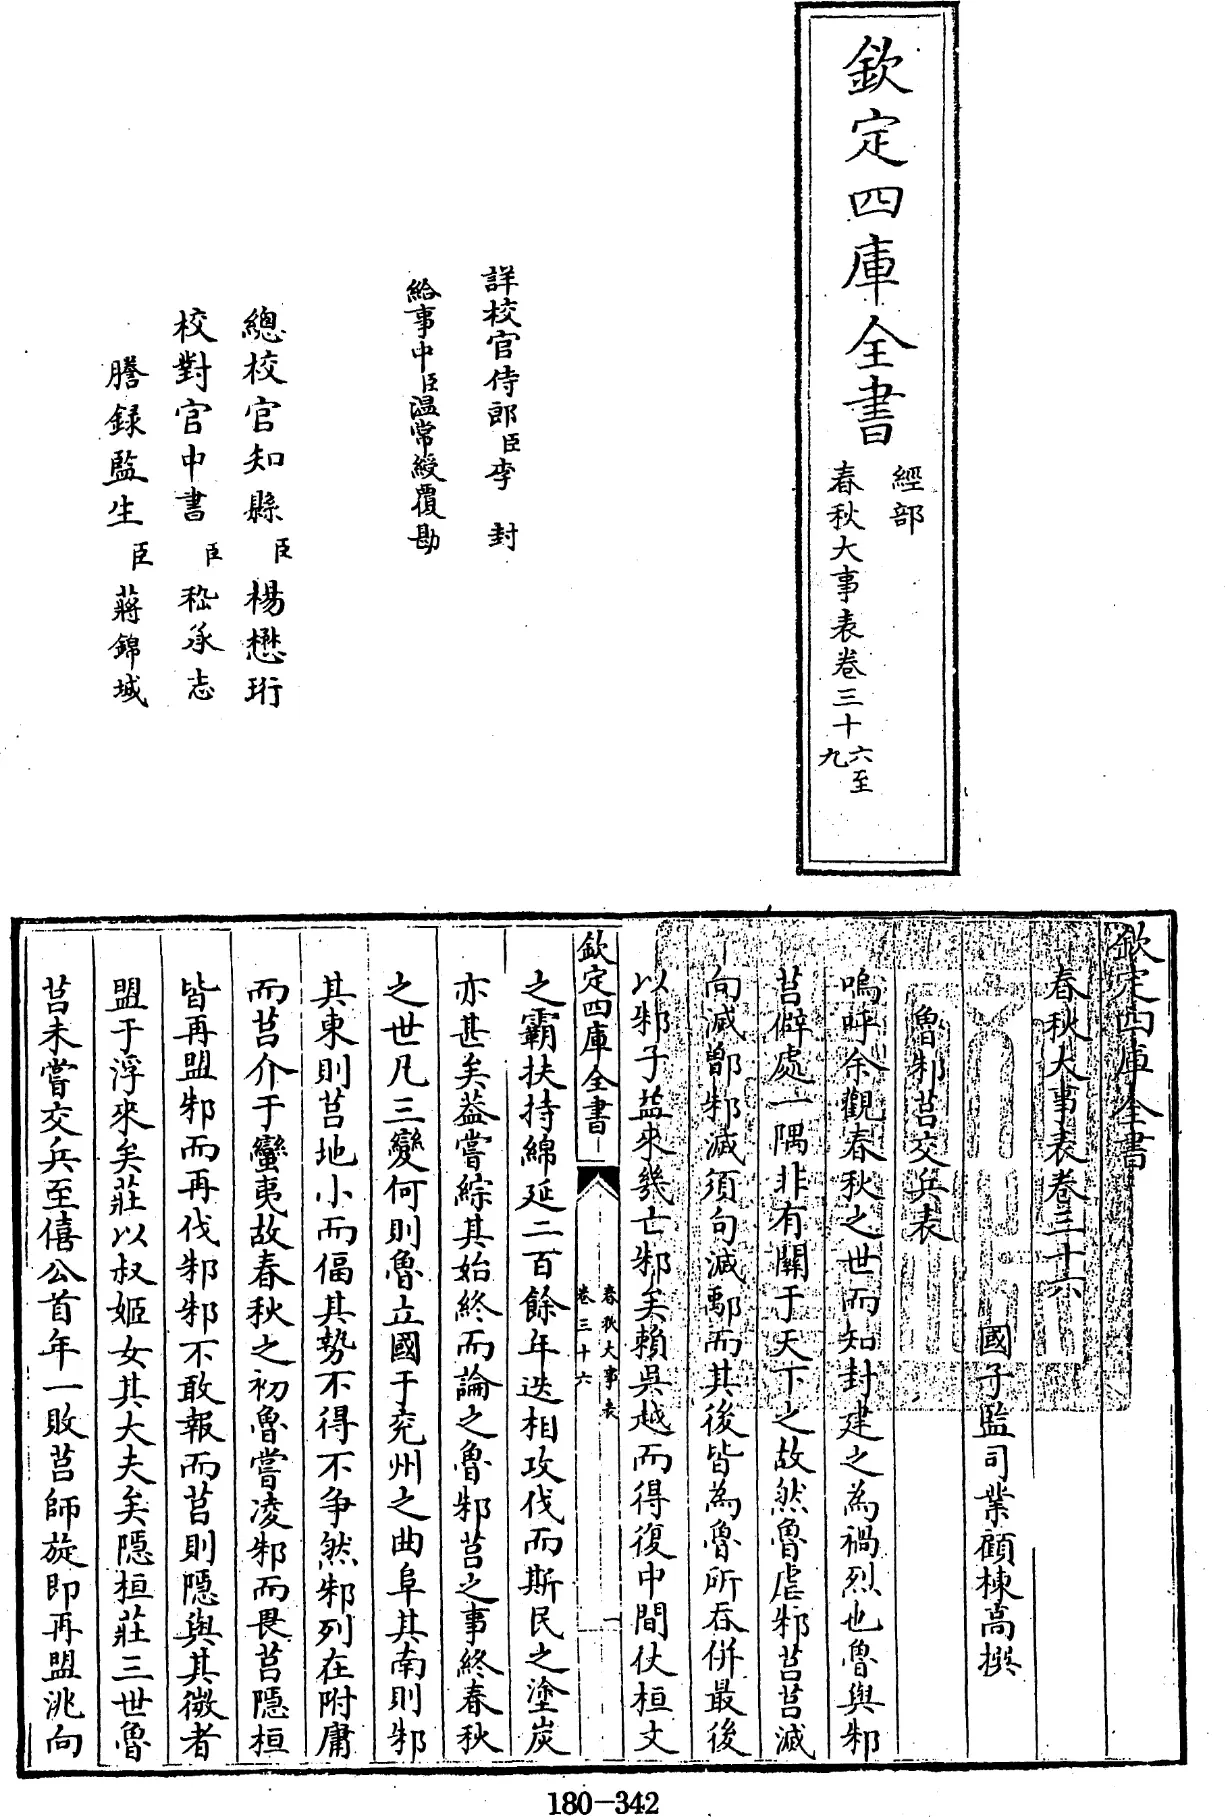 欽定四庫全書
經部
春秋大事表卷三十六至九
詳校官侍郎臣李封
給事中臣温常綬覆勘
總校官知縣臣楊懋珩
校對官中書臣嵇承志
謄録監生臣蔣錦城
欽定四庫全書
春秋大事表卷三十六
國子監司業顧棟高撰
魯邾莒交兵表
嗚呼余觀春秋之世而知封建之為禍烈也魯與邾
莒僻處一隅非有關于天下之故然魯虐邾莒莒滅
向滅鄫邾滅須句滅鄅而其後皆為魯所吞併最後
以邾子益來幾亡邾矣賴吳越而得復中間仗桓文
欽定四庫全書
春秋大事表
卷三十六
一
之霸扶持綿延二百餘年迭相攻伐而斯民之塗炭
亦甚矣蓋嘗綜其始終而論之魯邾莒之事終春秋
之世凡三變何則魯立國于兖州之曲阜其南則邾
其東則莒地小而偪其勢不得不争然邾列在附庸
而莒介于蠻夷故春秋之初魯嘗凌邾而畏莒隱桓
皆再盟邾而再伐邾邾不敢報而莒則隱與其微者
盟于浮來矣莊以叔姬女其大夫矣隱桓莊三世魯
莒未嘗交兵至僖公首年一敗莒師旋即再盟洮向
180-342